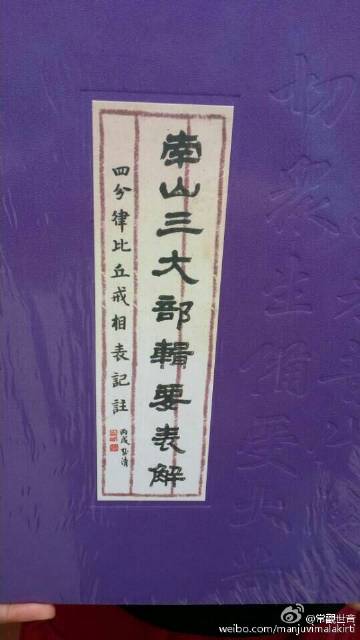 南山三大部輯要表解
四分律比丘戒相表記註
丙戌
@常觀世音
weibo.com/manjuvimalakirti